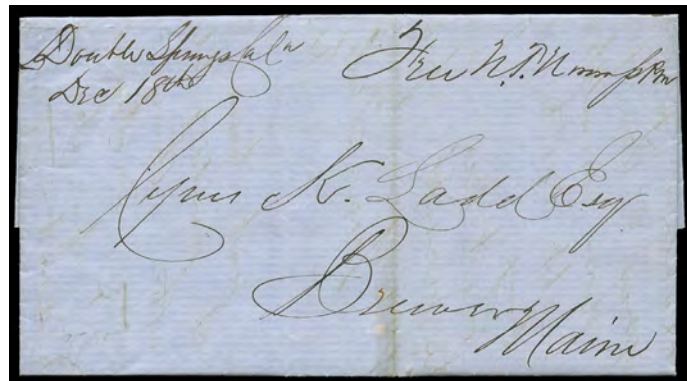 Double Springs Cala
Dec 18th
Free
Cyrus K. Ladd Esq
Brewer
Maine